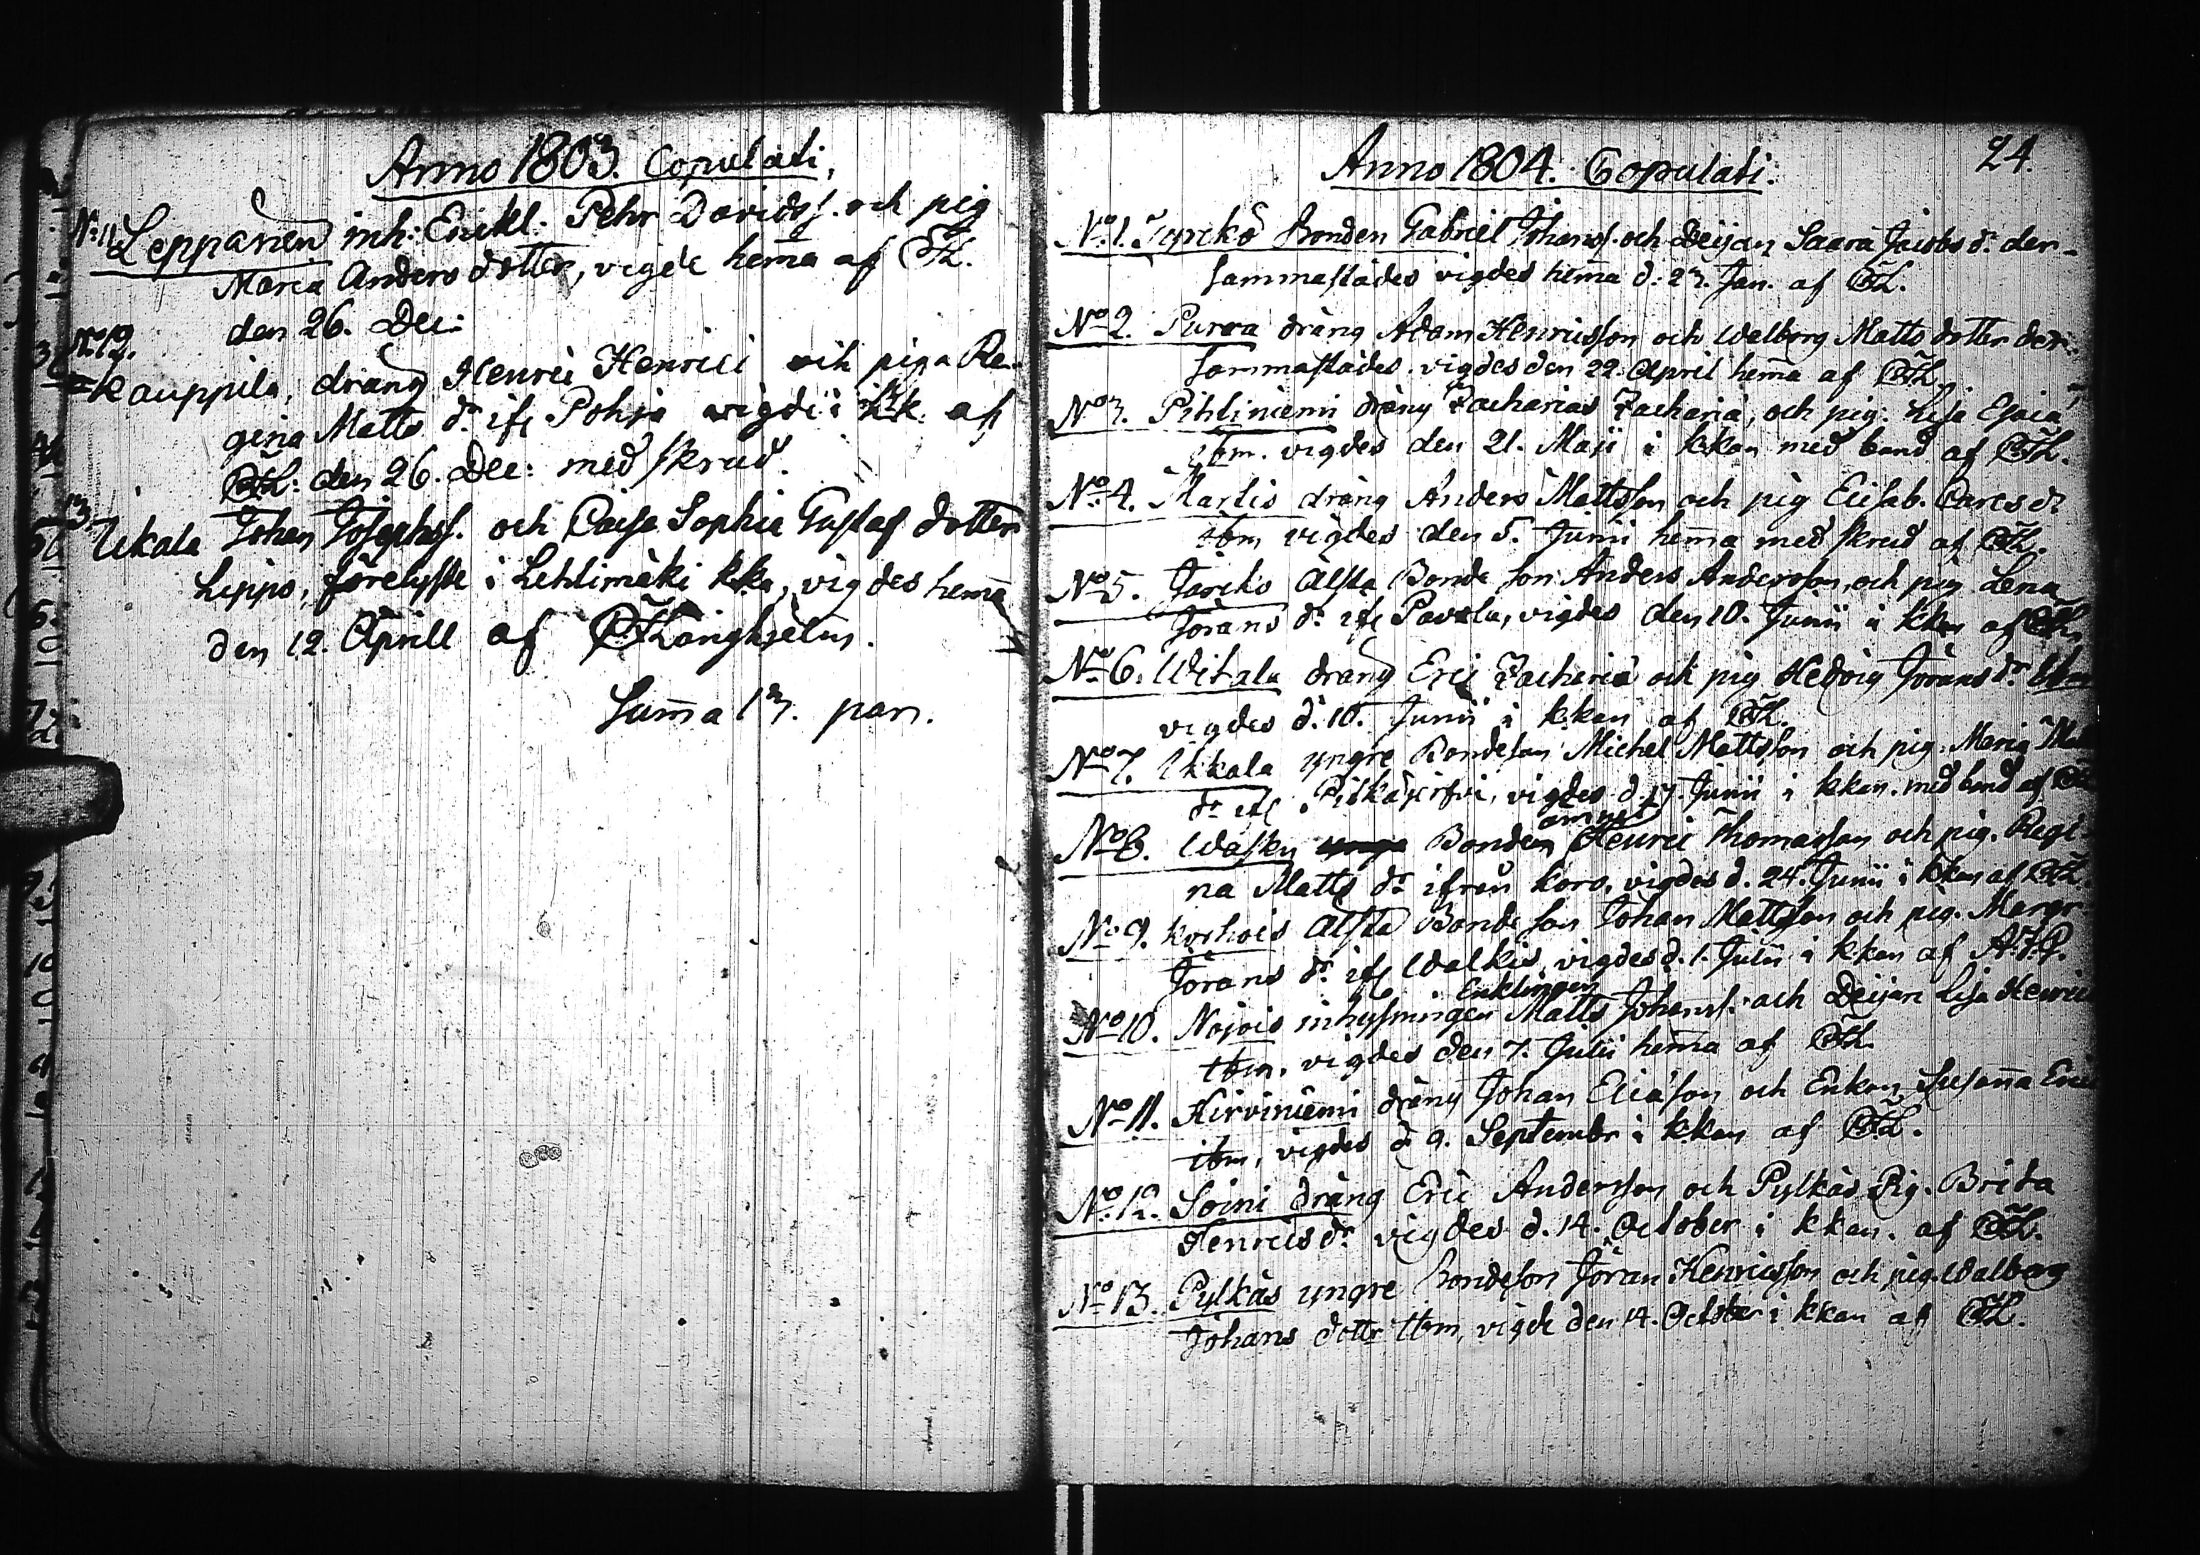 Anno 1803. Copulati.
No 11 Leppänen inh: Enkl: Pehr Davidss. och pig
Maria Anders dotter, vigde hem̄a af CTL.
den 26. Dec:
No 12.
Kauppila, dräng Henric Henrici och piga Re-
gina Matts dr. ifr Pohja vigde i kk. af
CTL: den 26. Dec: med skrud.
13
Ukala Johan Josephss. och Caisa Sophia Gustaf dotter
Lippo, förelyste i Lehtimäki kka, vigdes hem̄a
den 12. April af
Sum̄a 13. par.
Anno 1804. Copulati.
24.
No 1. Jyrckö Bonden Gabriel Johanss. och Deijan Saara Jacobs dr. der-
sammastädes vigdes hem̄a d: 23. Jan. af CTL.
No 2. Purra dräng Adam Henricsson och Walborg Matts dotter der-
sammastädes. vigdes den 22. April hem̄a af CTL.
No 3. Pihliniemi dräng Zacharias Zachariæ, och pig. Lisa Esaiæ
ibm. vigdes den 21. Maji i kkan med band af CTL.
No 4. Martis dräng Anders Mattsson och pig Elisab. Carls dr
ibm vigdes den 5. Junii hem̄a med skrud af CTL.
No 5. Järiks älsta Bonde son Anders Andersson, och pig Lena
Jörans dr. ifr Pavola, vigdes den 10. Junii i kkan af CTL
No 6. Witala dräng Eric Zachariæ och pig Hedvig Jörans dr. ibm
vigdes d. 10. Junii i kkan af CTL.
No 7. Ukkola yngre Bondeson Michel Mattsson och pig. Maria
dr ifr Pitkäjerfvi, vigdes d. 17. Junii i kkan. med band af CTL
No 8. Wasky Bonden Henric Thomasson och pig. Regi-
na Matts dr ifrån Koro, vigdes d. 24. Junii i kkan af CTL.
No 9. Korhois älsta Bonde son Johan Mattsson och pig. Margr.
Jörans dr. ifr Walkis, vigdes d. 1. Julii i kkan af
Enklingen
No 10. Nojois inhysningen Matts Johanss. och Deijan Lisa Henrics
ibm, vigdes den 7. Julii hem̄a af CTL.
No 11. Hirviniemi dräng Johan Eliæson och Enkan Susan̄a Erics
ibm, vigdes d 9. Septembr i kkan af CTL.
No 12. Soini dräng Eric Andersson och Pylkäs Pig. Brita
Henrics dr. vigdes d. 14. October i kkan. af CTL.
No 13. Pylkäs yngre Bondeson Jöran Henricsson och pig. Walborg
Johans dottr ibm, vigde den 14. October i kkan af CTL.